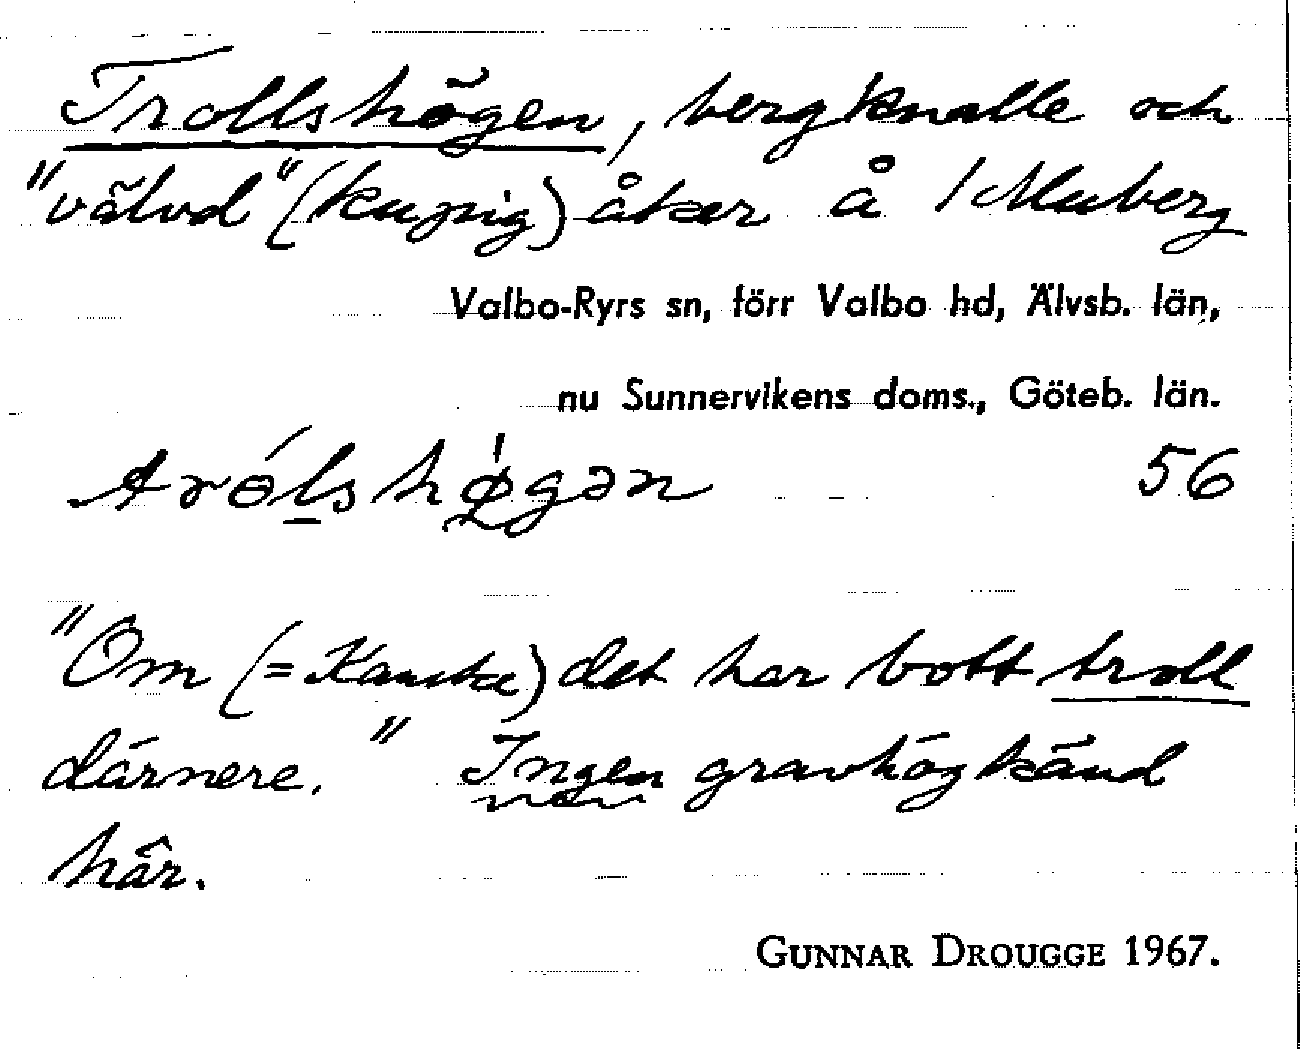 Trollshögen, bergknalle och
"välvd" (kupig) åker å 1 Muberg
Valbo-Ryrs sn, förr Valbo hd, Älvsb. län,
nu Sunnervikens doms., Göteb. län.
56
"Om (= Kanske) det har bott troll
därnere." Ingen gravhög känd
här.
GUNNAR DROUGGE 1967.